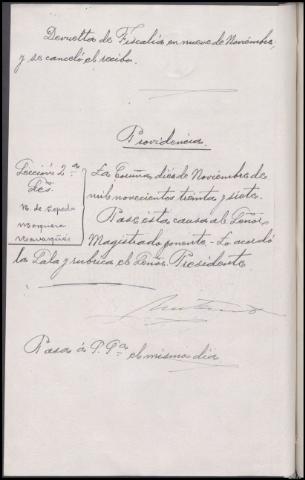 Devuelta de Fiscalía en nueve de Noviembre,
y se canceló el recibo.
Providencia.
Sección 2ª
Sres.
M. de Cepeda
Mosquera
La Coruña, diez de Noviembre de
mil novecientos treinta y siete.
Pase esta causa al Señor
Magistrado ponente. Lo acordó
la Sala y rubrica el Señor Presidente
Pasa á P. Pª el mismo día